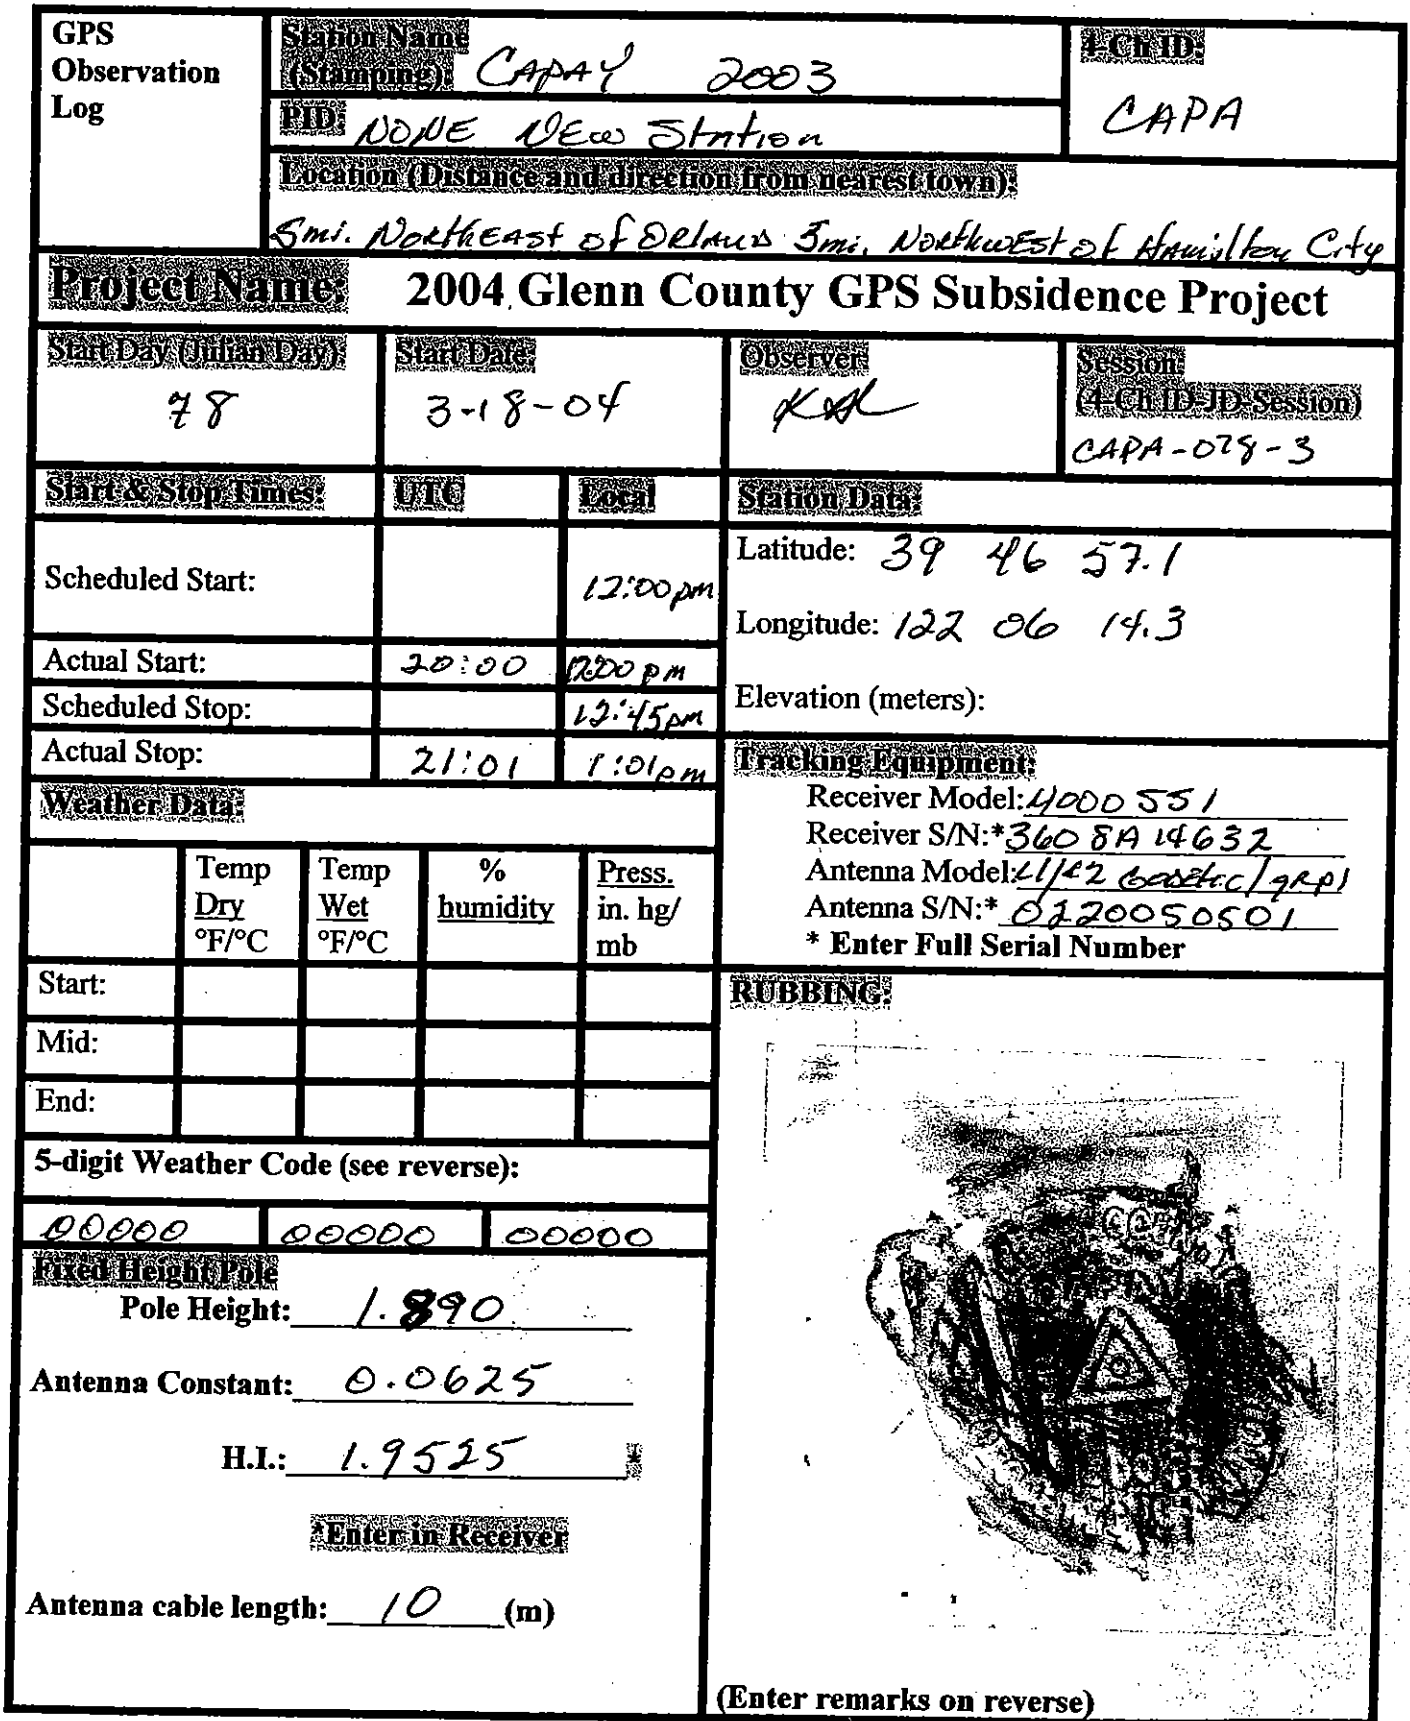 GPS
Observation
Log
Station Name
(Stamping): CAPAY 2003
4-Ch ID:
CAPA
PID: NONE NEW Station
Location (Distance and direction from nearest town):
5mi. NorthEAST of ORLAND 5mi. NorthwEST of Hamilton City
Project Name: 2004 Glenn County GPS Subsidence Project
Start Day (Julian Day)
78
Start Date:
3-18-04
Observer:
Session:
(4-Ch ID-JD-Session)
CAPA-078-3
Start & Stop Times: UTC Local
Scheduled Start: 12:00pm
Actual Start: 20:00 12:00 pm
Scheduled Stop: 12:45pm
Actual Stop: 21:01 1:01pm
Station Data:
Latitude: 39 46 57.1
Longitude: 122 06 14.3
Elevation (meters):
Tracking Equipment:
Receiver Model: 4000 SSI
Receiver S/N:* 3608A14632
Antenna Model: L1/L2 Geodetic/grpl
Antenna S/N:* 0220050501
* Enter Full Serial Number
Weather Data:
Temp
Dry
°F/°C
Temp
Wet
°F/°C
%
humidity
Press.
in. hg/
mb
Start:
Mid:
End:
5-digit Weather Code (see reverse):
00000 00000 00000
Fixed Height Pole
Pole Height: 1.890
Antenna Constant: 0.0625
H.I.: 1.9525 *
*Enter in Receiver
Antenna cable length: 10 (m)
RUBBING:
(Enter remarks on reverse)